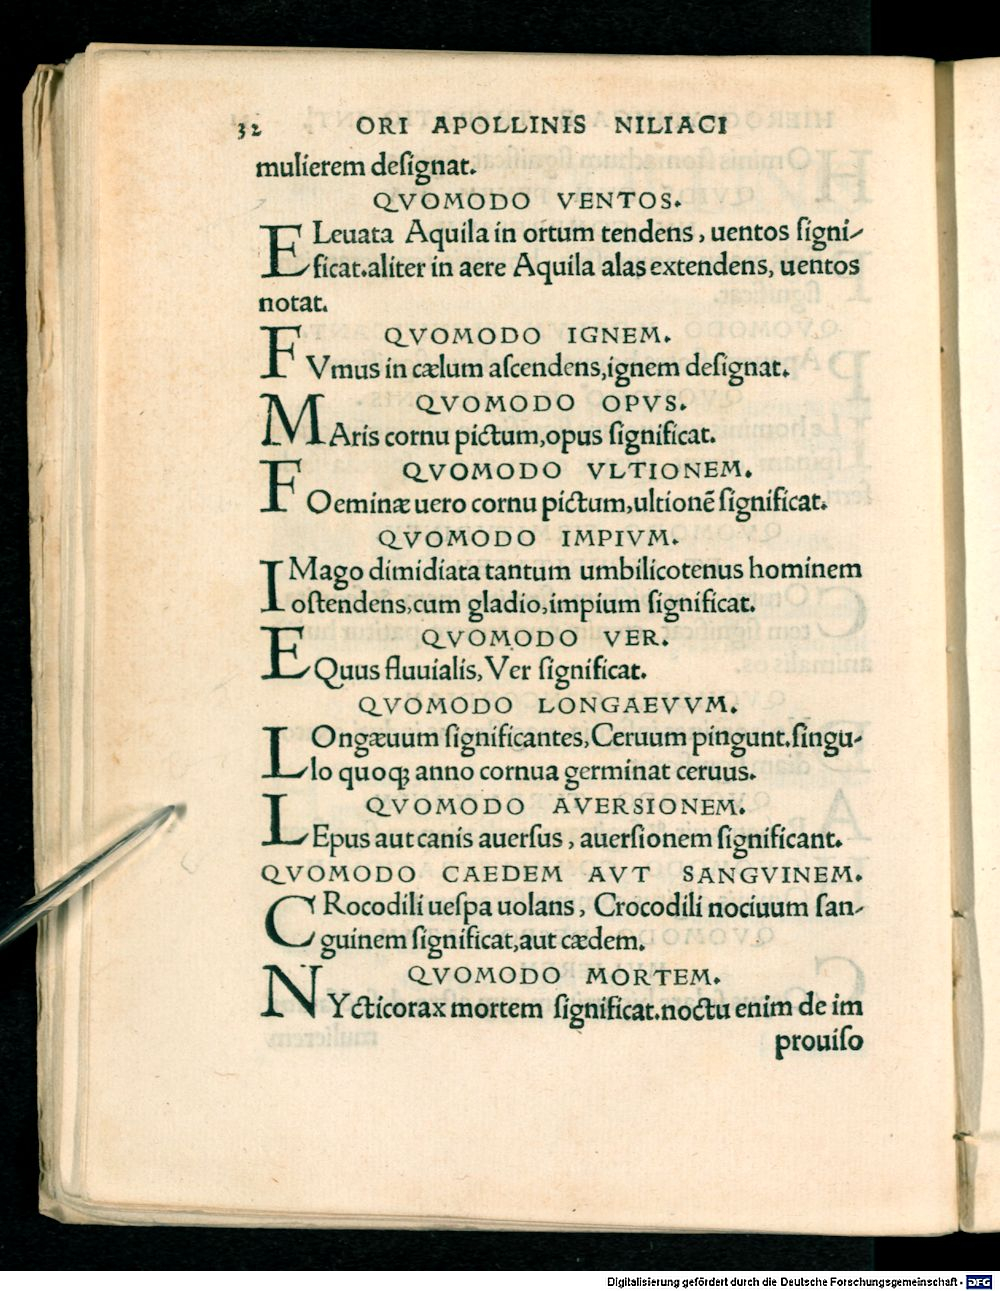 32 ORI APOLLINIS NILIACI
mulierem deſignat.
QVOMODO VENTOS.
ELeuata Aquila in ortum tendens, uentos ſigni-
ficat.aliter in aere Aquila alas extendens, uentos
notat.
QVOMODO IGNEM.
FVmus in cælum aſcendens,ignem deſignat.
QVOMODO OPVS.
MAris cornu pictum,opus ſignificat.
QVOMODO VLTIONEM.
FOeminæ uero cornu pictum,ultionē ſignificat.
QVOMODO IMPIVM.
IMago dimidiata tantum umbilicotenus hominem
oſtendens,cum gladio,impium ſignificat.
QVOMODO VER.
EQuus fluuialis, Ver ſignificat.
QVOMODO LONGAEVVM.
LOngæuum ſignificantes, Ceruum pingunt.ſingu-
lo quoqꝫ anno cornua germinat ceruus.
QVOMODO AVERSIONEM.
LEpus aut canis auerſus, auerſionem ſignificant.
QVOMODO CAEDEM AVT SANGVINEM.
CRocodili ueſpa uolans, Crocodili nociuum ſan-
guinem ſignificat,aut cædem.
QVOMODO MORTEM.
NYcticorax mortem ſignificat.noctu enim de im
prouiſo
Digitalisierung gefördert durch die Deutsche Forschungsgemeinschaft - DFG